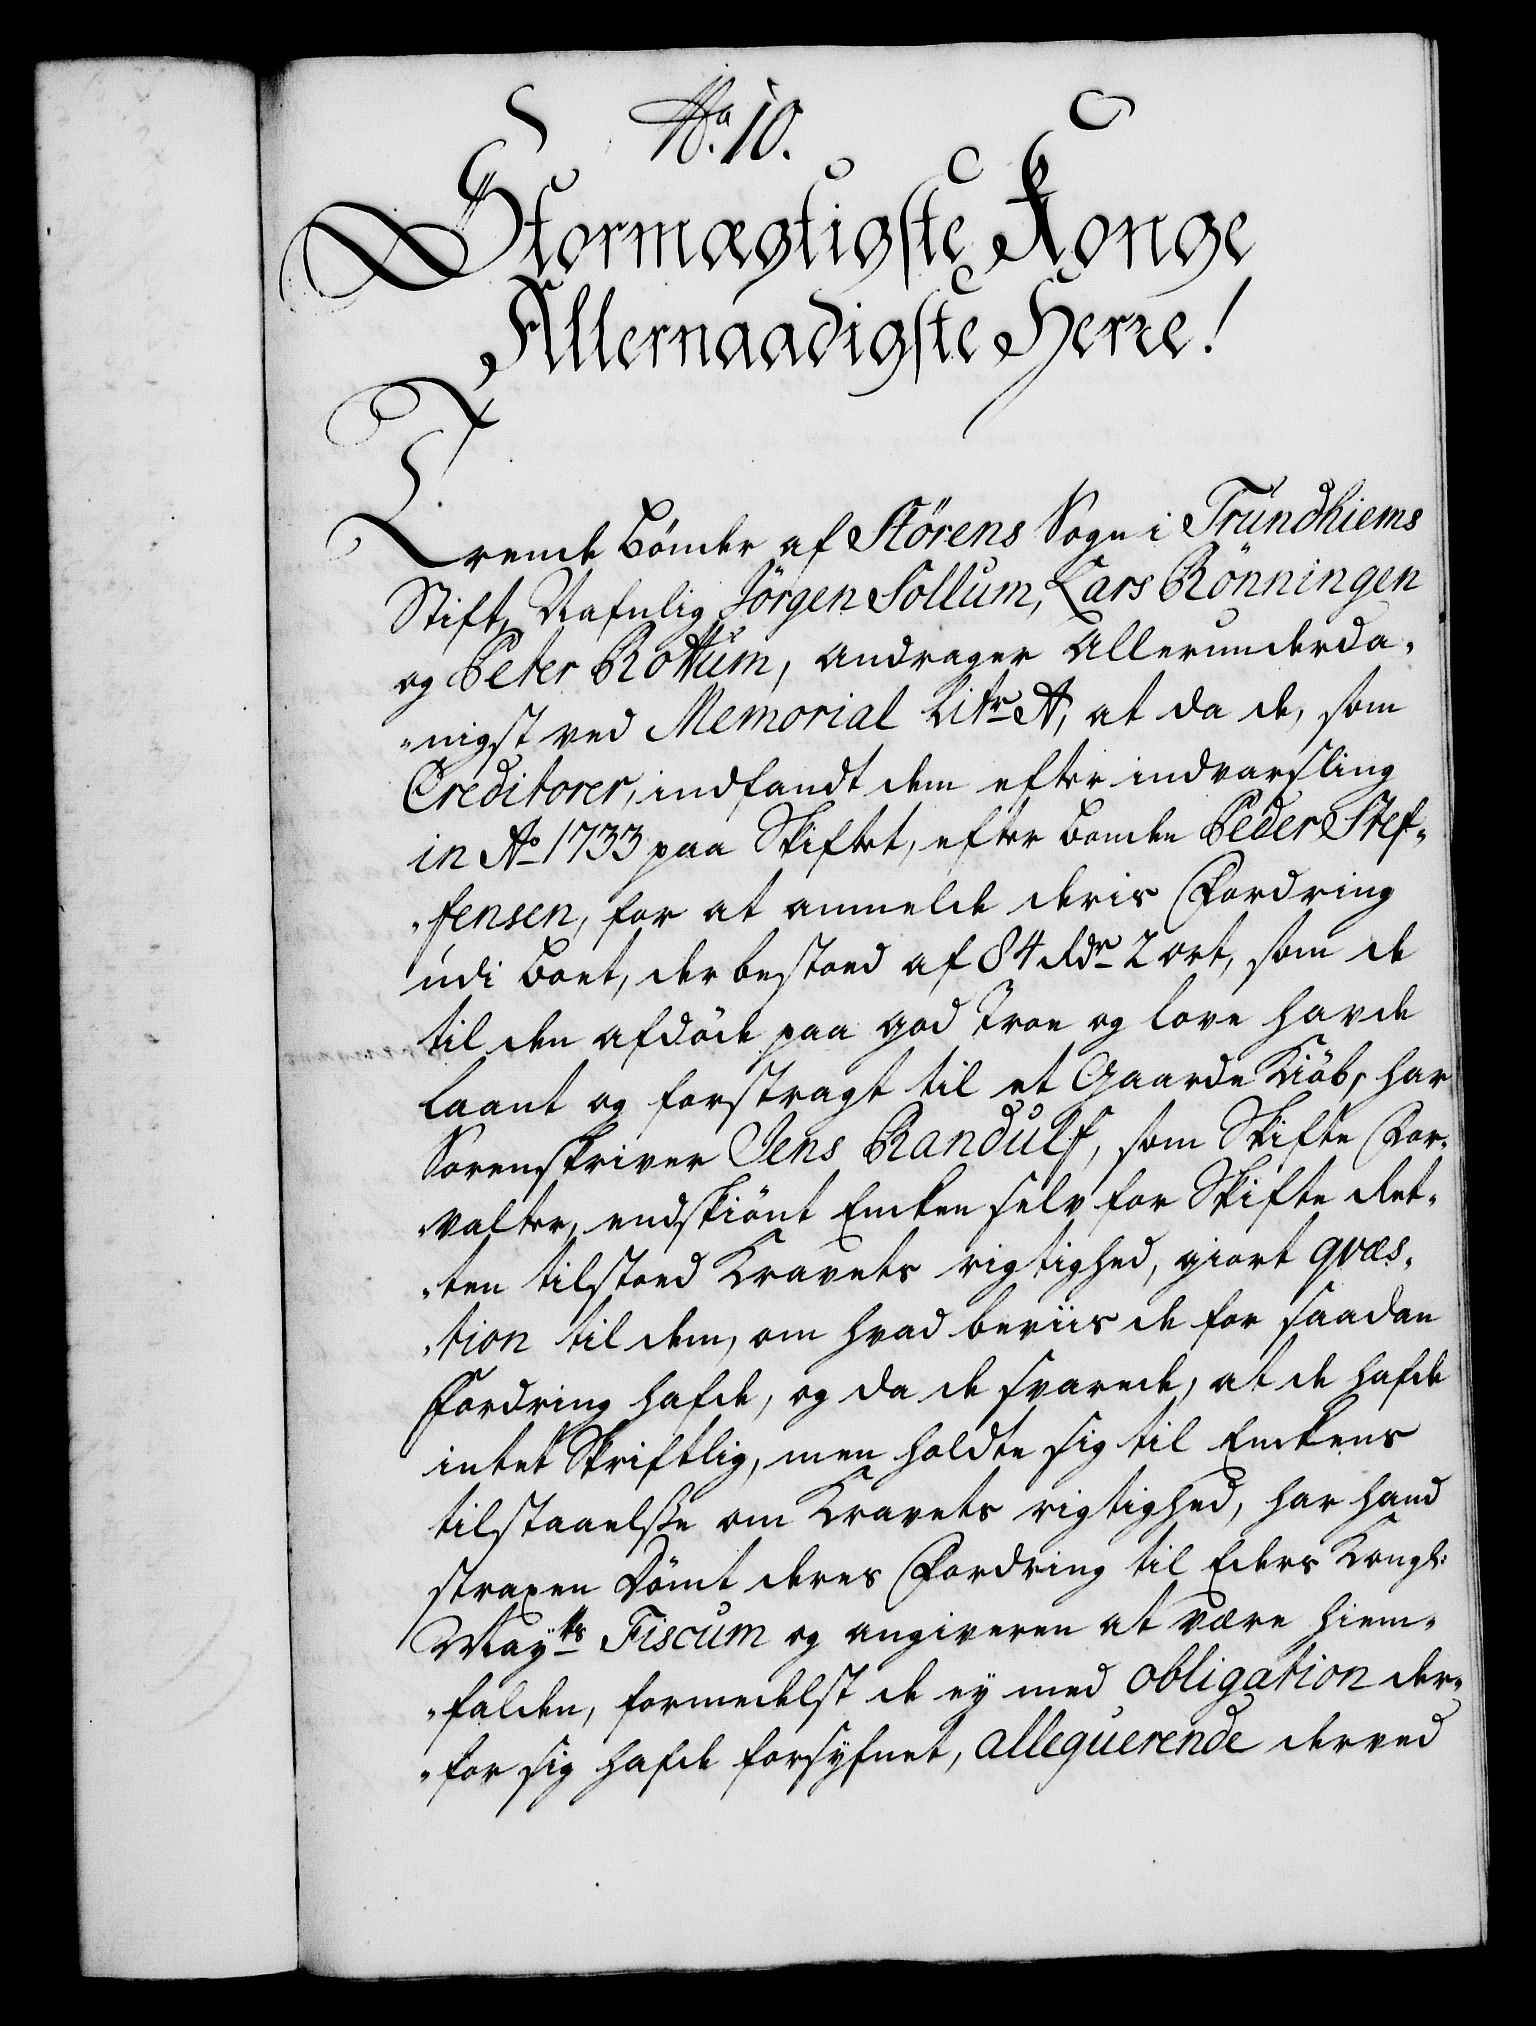 No. 10.
Stormægtigste Konge
Allernaadigste Herre!
Trende Bønder af Størens Sogn i Trundhiems
Stift, Nafnlig Jörgen Sollum, Lars Rönningen
og Peter Rottum, andrager Allerunderda-
-nigst ved Memorial Litr A, at da de, som
Creditorer, indfandt dem efter indvarsling
in Ao 1733 paa Skiftet, efter bonden Peder Stef-
-fensen, for at anmelde deris Fordring
udi Boet, der bestoed af 84 Rdr 2 ort, som de
til den afdøde paa god Troe og love havde
laant og forstragt til et Gaarde Kiöb, har
Sorenskriver Jens Randulf, som Skifte For-
-valter, endskiönt Encken selv for Skifte Ret-
-ten tilstoed Kravets rigtighed, giort qvæs-
-tion til dem, om hvad beviis de for saadan
Fordring hafde, og da de svarede, at de hafde
intet Skriftlig, men holdte sig til Enckens
tilstaaelsse om Kravets rigtighed, har hand
straxen Dömt deres Fordring til Eders Kongl:
Mayts Fiscum og angiveren at være hiem-
-falden, formedelst de ey med obligation der-
-for sig hafde forsyfnet, allequerende derved